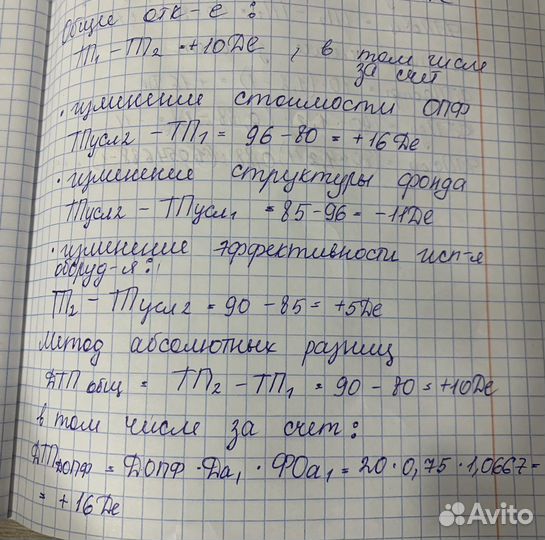 Общее отк-е:
ТП1 - ТП2 = +10 Де, в том числе
за счет
· изменение стоимости ОПФ
ТПусл2 - ТП1 = 96 - 80 = +16 Де
· изменение структуры фонда
ТПусл2 - ТПусл1 = 85 - 96 = -11 Де
· изменение эффективности исп-я
оборуд-я:
ТП2 - ТПусл2 = 90 - 85 = +5 Де
Метод абсолютных разниц
ΔТПобщ = ТП2 - ТП1 = 90 - 80 = +10 Де
в том числе за счет:
ΔТПΔОПФ = ΔОПФ · Да1 · ФОа1 = 20 · 0,75 · 1,0667 =
= +16 Де
Avito